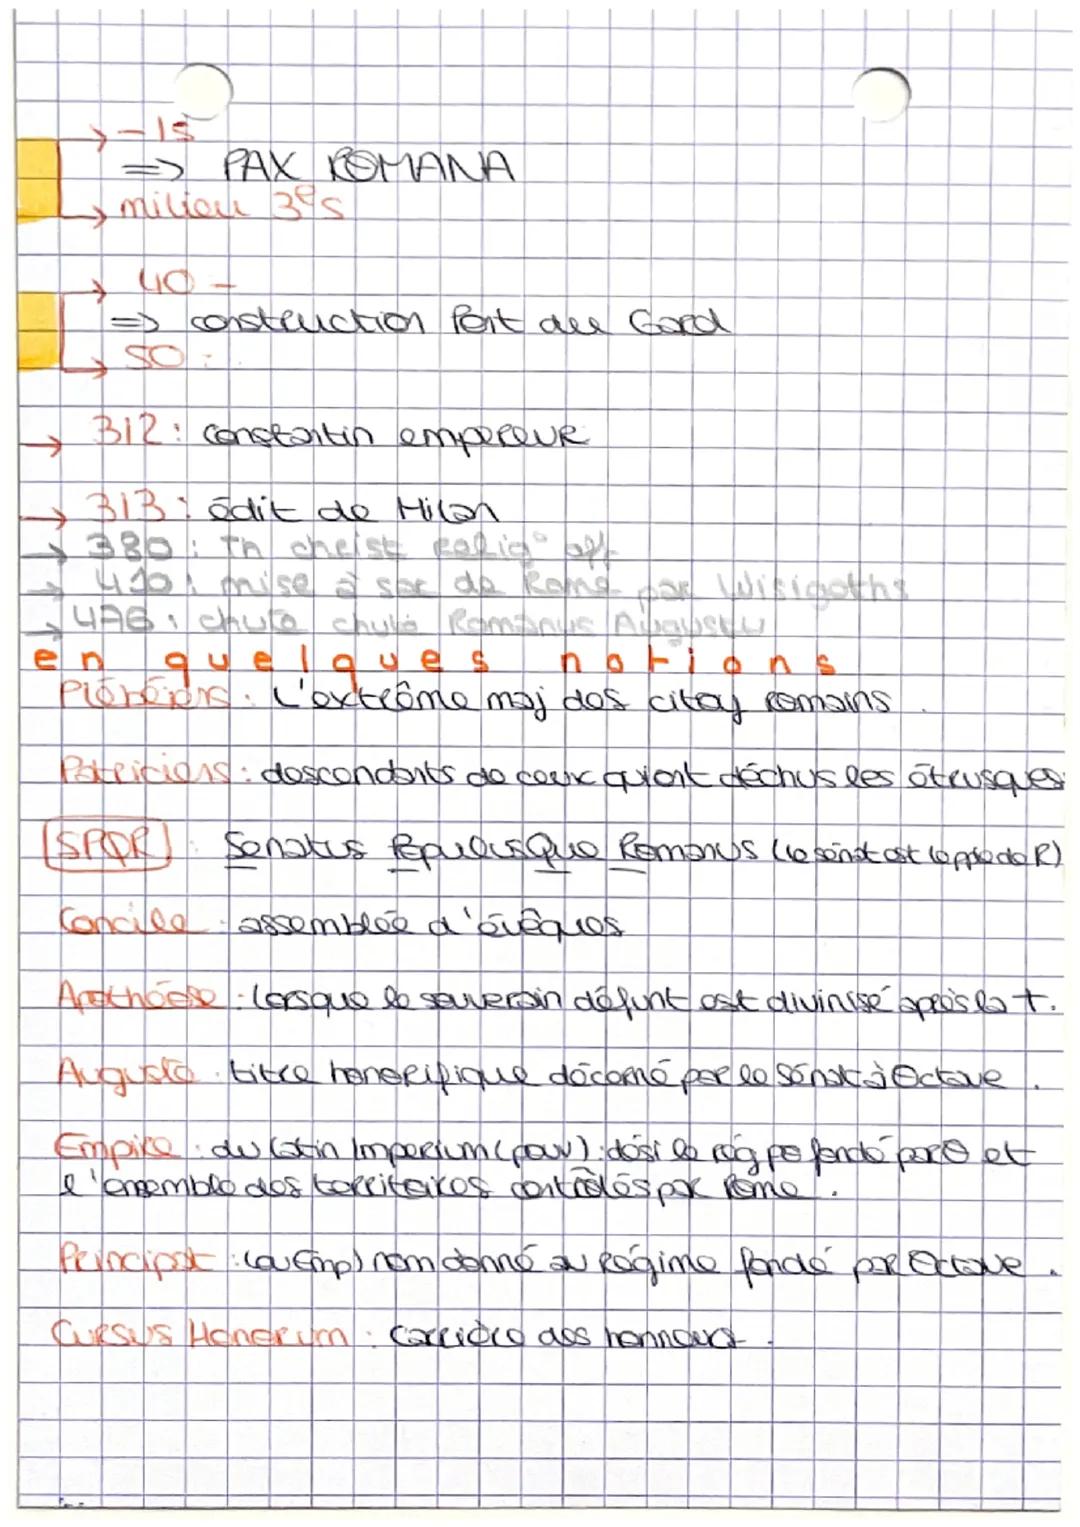 → -1s
=> PAX ROMANA
→ milieu 3e s
→ 40 -
=> construction Pont du Gard
→ 50 :
→ 312 : constantin empereur
→ 313 : édit de Milan
→ 380 : Th christ relig° off
→ 410 : mise à sac de Rome par Wisigoths
→ 476 : chute chute Romanus Augustu
en quelques notions
Plébéiens : L'extrême maj des citoy romains.
Patriciens : descendants de ceux qui ont déchus les étrusques
SPQR : Senatus PopulusQue Romanus (le sénat et le pple de R)
Concile : assemblée d'évêques
Apothéose : lorsque le souverain défunt est divinisé après la †.
Auguste : titre honorifique décerné par le Sénat à Octave.
Empire : du latin Imperium (pouv) : dési le rég po fondé par O et
l'ensemble des territoires contrôlés par Rome.
Principat : (ou Emp) nom donné au Régime fondé par Octave.
Cursus Honorum : carrière des honneurs.